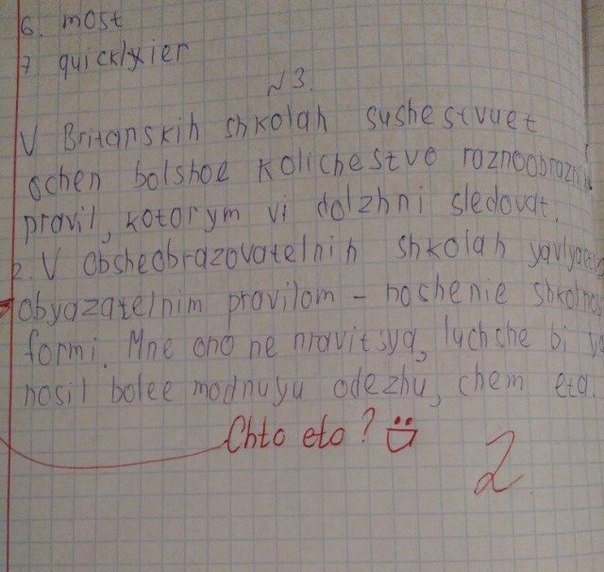 6. most
7 quicklyier
№3.
V Britanskih shkolah sushestvuet
ochen bolshoe kolichestvo raznoobraznih
pravil, kotorym vi dolzhni sledovat.
2. V obsheobrazovatelnih shkolah yavlyaetsa
obyazatelnim pravilom - noshenie shkolnoi
formi. Mne ono ne nravitsya, luchshe bi ya
nosil bolee modnuyu odezhu, chem eta.
Chto eto?
2